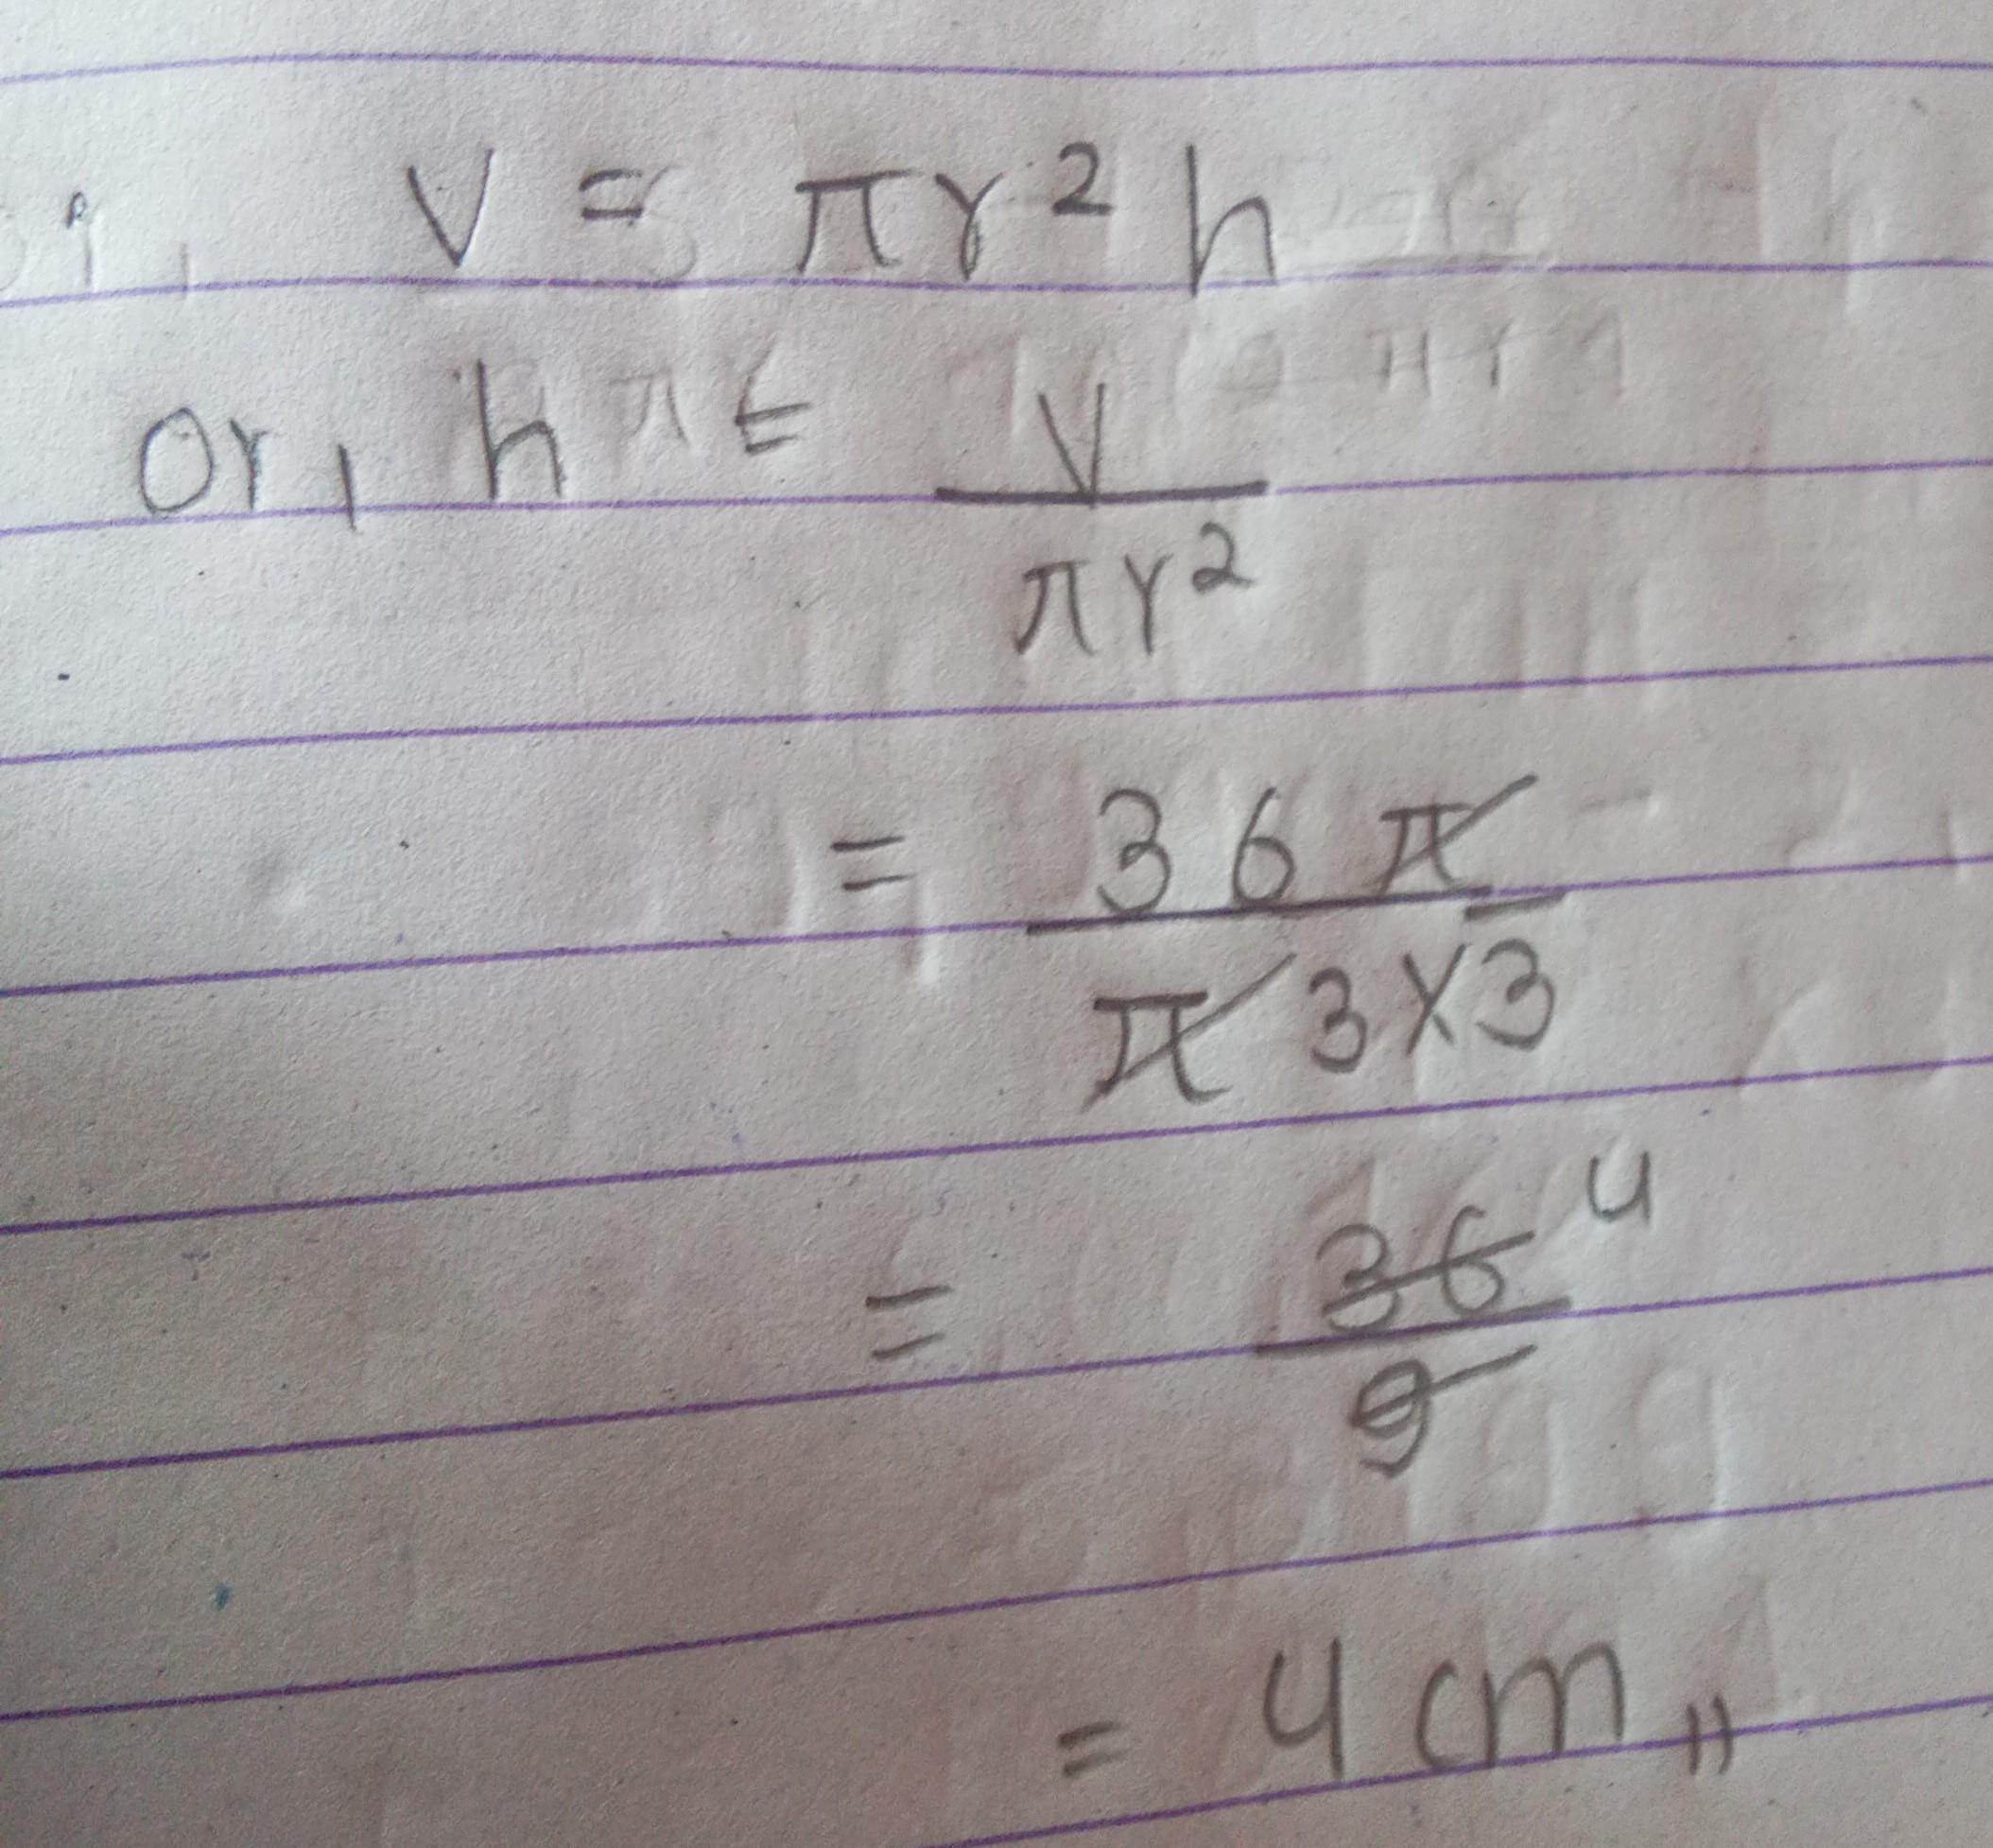 V = πr²h
Or, h = V / πr²
= 36π / π 3×3
= 36 4 / 9
= 4 cm,,